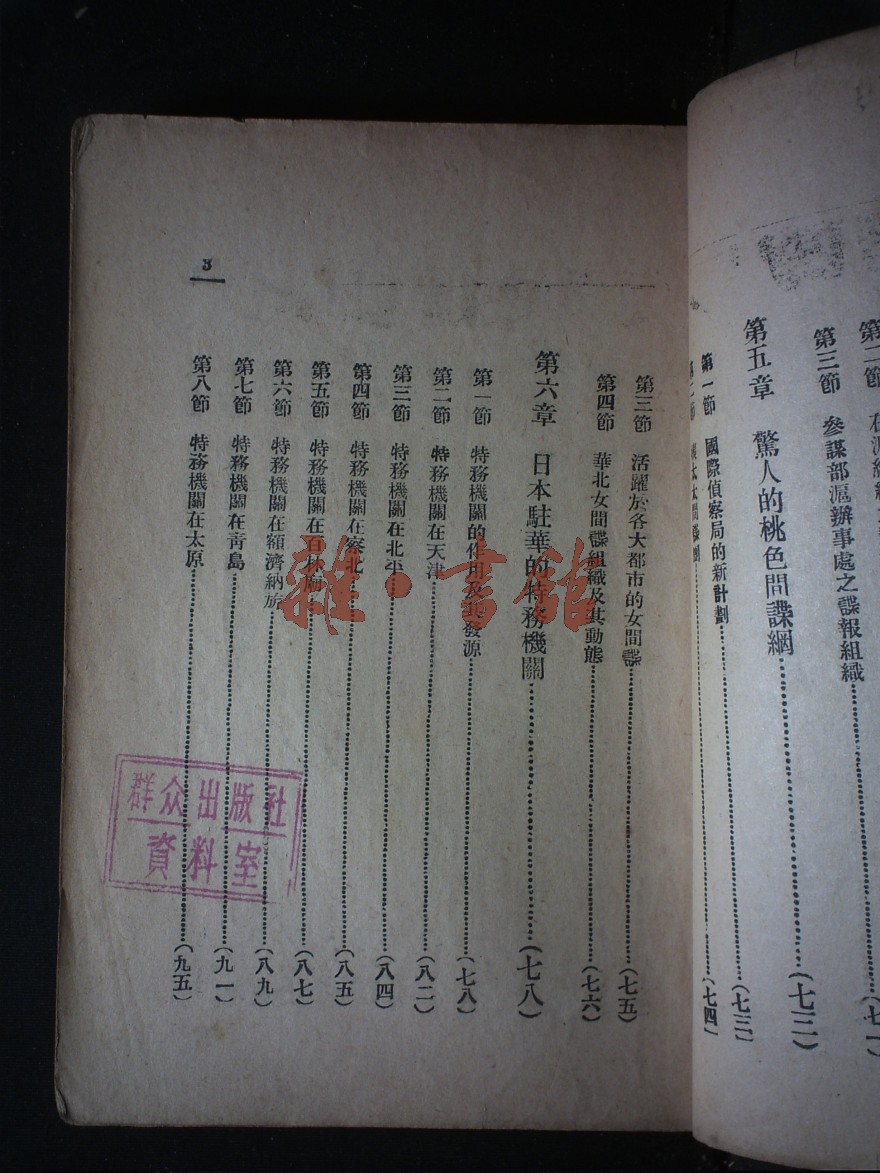 第三節 參謀部滬辦事處之諜報組織
第五章 驚人的桃色間諜網……(七三)
第一節 國際偵察局的新計劃……(七三)
(七四)
第三節 活躍於各大都市的女間諜……(七五)
第四節 華北女間諜組織及其動態……(七六)
第六章 日本駐華的特務機關……(七八)
第一節 特務機關的作用及其發源……(七八)
第二節 特務機關在天津……(八二)
第三節 特務機關在北平……(八四)
第四節 特務機關在察北……(八五)
第五節 特務機關在百林廟……(八七)
第六節 特務機關在額濟納旂……(八九)
第七節 特務機關在靑島……(九一)
第八節 特務機關在太原……(九五)
3
雜·書館
群众出版社
資料室